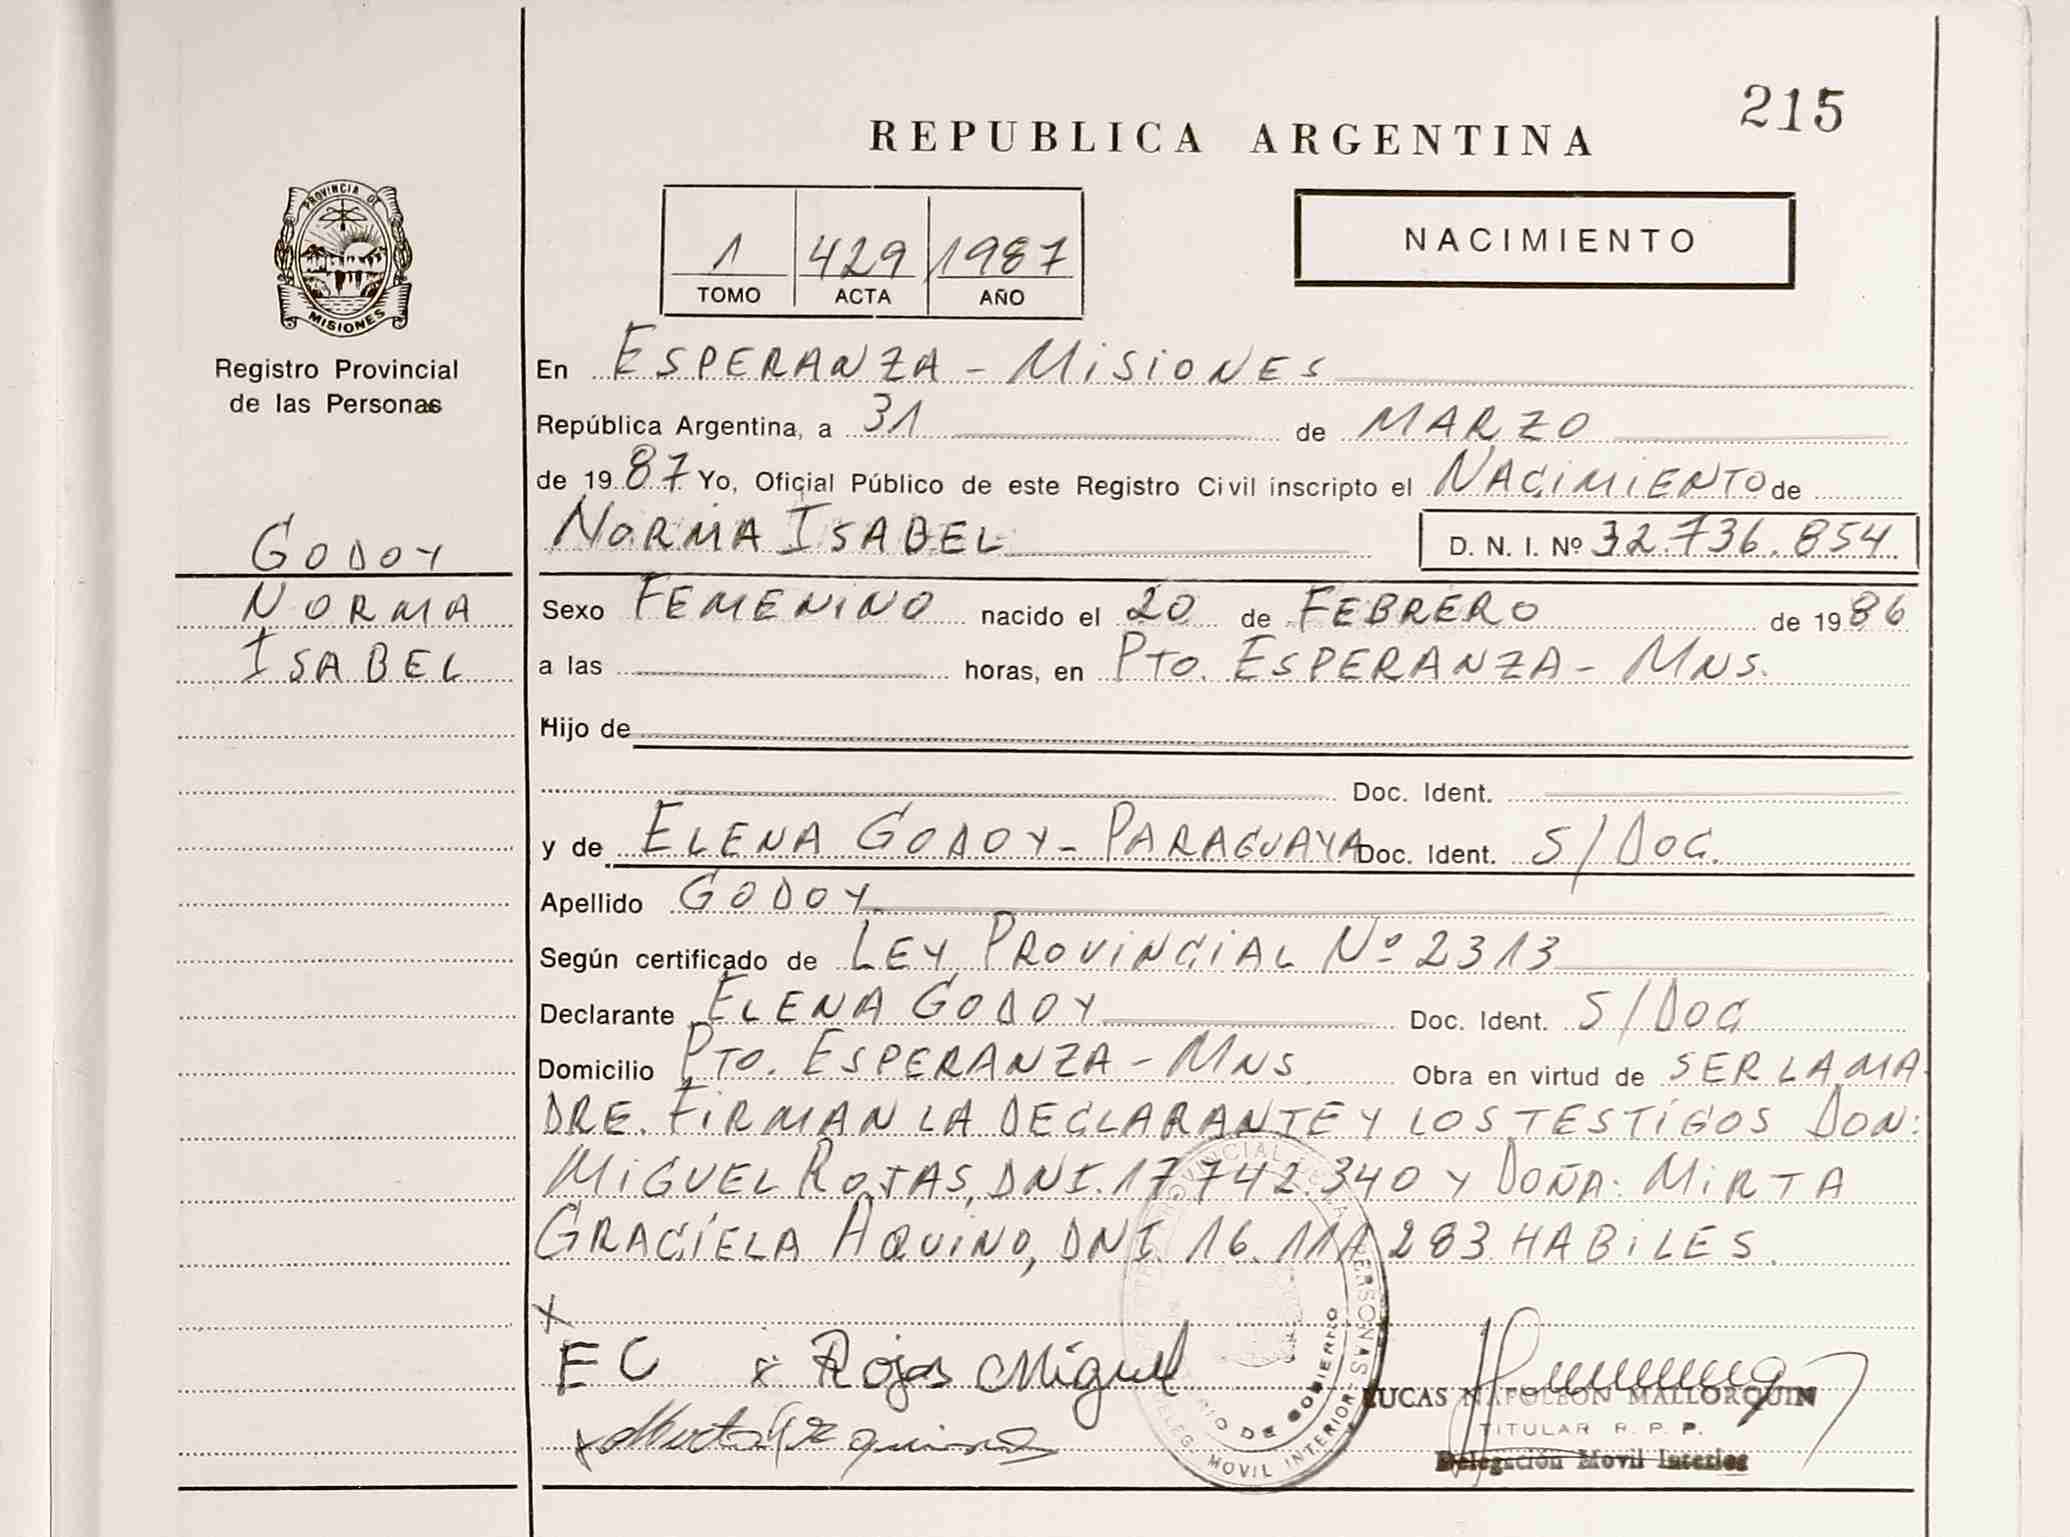 215
REPUBLICA ARGENTINA
PROVINCIA DE
MISIONES
Registro Provincial
de las Personas
1 429 1987
TOMO ACTA AÑO
NACIMIENTO
GODOY
NORMA
ISABEL
En ESPERANZA - MISIONES
República Argentina, a 31 de MARZO
de 1987 Yo, Oficial Público de este Registro Civil inscripto el NACIMIENTO de
NORMA ISABEL D. N. I. Nº 32.736.854
Sexo FEMENINO nacido el 20 de FEBRERO de 1986
a las horas, en PTO. ESPERANZA - MNS.
Hijo de
Doc. Ident.
y de ELENA GODOY - PARAGUAYA Doc. Ident. S/DOC.
Apellido GODOY
Según certificado de LEY PROVINCIAL Nº 2313
Declarante ELENA GODOY Doc. Ident. S/DOC
Domicilio PTO. ESPERANZA - MNS Obra en virtud de SER LA MA
DRE. FIRMAN LA DECLARANTE Y LOS TESTIGOS DON:
MIGUEL ROJAS, DNI. 17.742.340 Y DOÑA: MIRTA
GRACIELA AQUINO, DNI 16.111.283 HABILES.
X
E C x Rojas Miguel
x
LUCAS NAPOLEON MALLORQUIN
TITULAR R. P. P.
Delegación Movil Interior
PROVINCIAL PERSONAS
DE GOBIERNO
DELEG. MOVIL INTERIOR